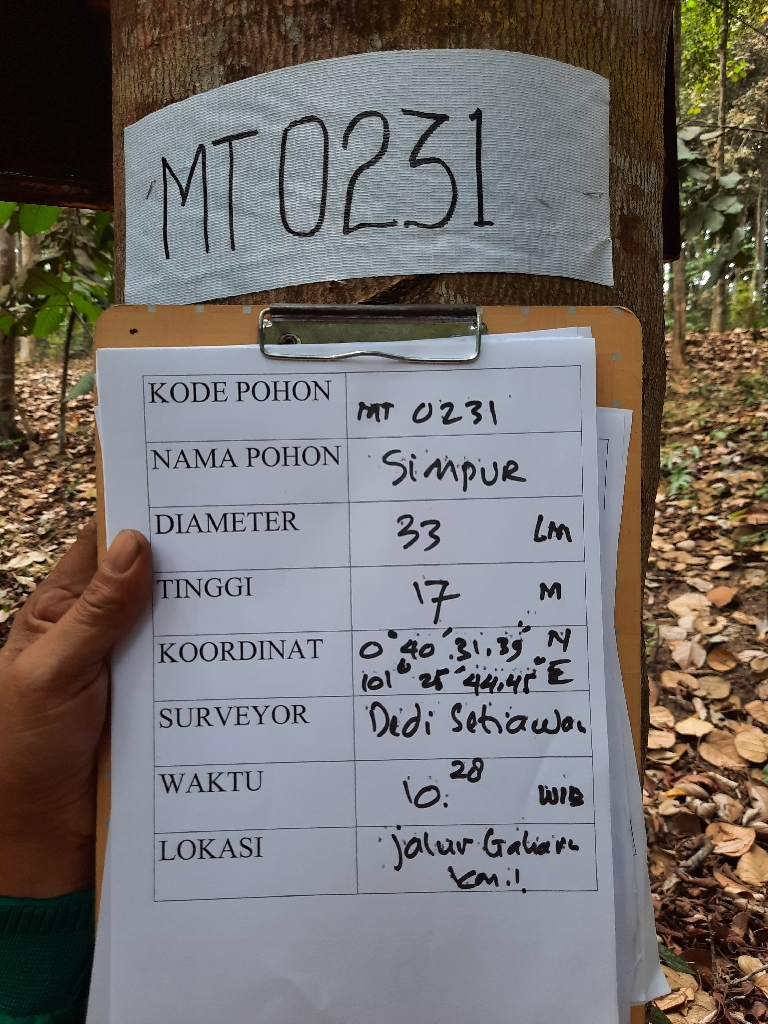 MT 0231
KODE POHON MT 0231
NAMA POHON SIMPUR
DIAMETER 33 CM
TINGGI 17 M
KOORDINAT 0° 40' 31.39" N
101° 25' 44.45" E
SURVEYOR Dedi Setiawan
WAKTU 10:28 WIB
LOKASI jalur Gaharu